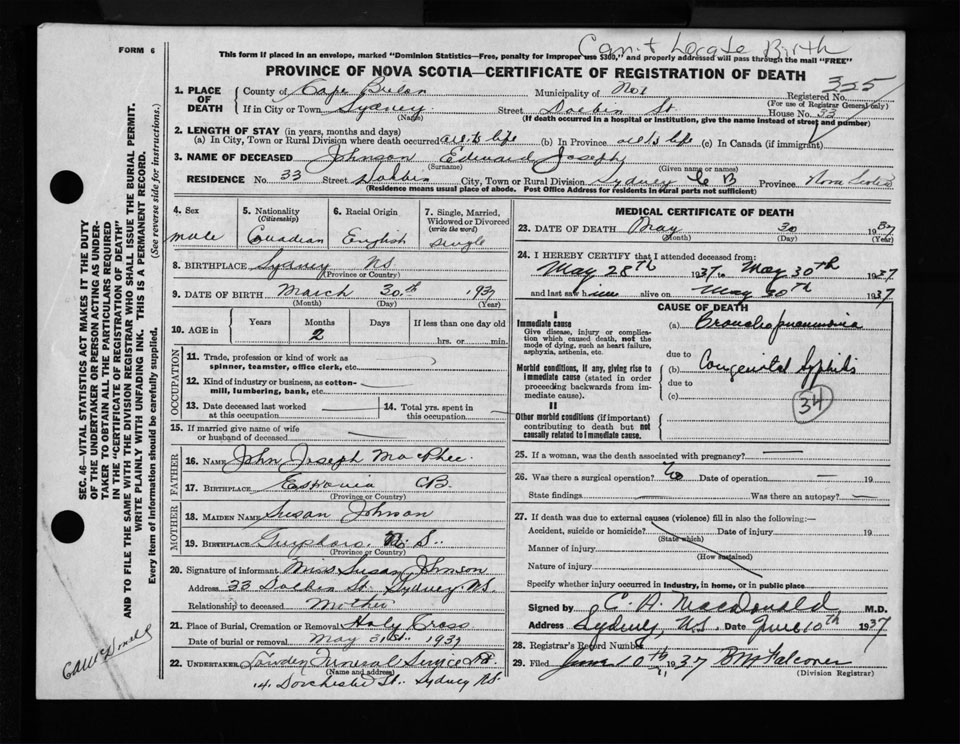 Can't Locate Birth
FORM 6
This form if placed in an envelope, marked "Dominion Statistics—Free, penalty for improper use $300," and properly addressed will pass through the mail "FREE"
PROVINCE OF NOVA SCOTIA—CERTIFICATE OF REGISTRATION OF DEATH
325
1. PLACE OF DEATH
County of Cape Breton Municipality of No 1 Registered No.
(For use of Registrar General only)
If in City or Town Sydney Street Dolbin St. House No. 33
(Name)
(If death occurred in a hospital or institution, give the name instead of street and number)
2. LENGTH OF STAY (in years, months and days)
(a) In City, Town or Rural Division where death occurred all its life (b) In Province all its life (c) In Canada (if immigrant)
3. NAME OF DECEASED Johnson Edward Joseph
(Surname) (Given name or names)
RESIDENCE No. 33 Street Dolbin City, Town or Rural Division Sydney C B Province Nova Scotia
(Residence means usual place of abode. Post Office Address for residents in rural parts not sufficient)
4. Sex
male
5. Nationality (Citizenship)
Canadian
6. Racial Origin
English
7. Single, Married, Widowed or Divorced (write the word)
Single
8. BIRTHPLACE Sydney N.S.
(Province or Country)
9. DATE OF BIRTH March 30th 1937
(Month) (Day) (Year)
10. AGE in Years Months Days If less than one day old
2 hrs. or min.
OCCUPATION
11. Trade, profession or kind of work as spinner, teamster, office clerk, etc.
12. Kind of industry or business, as cotton-mill, lumbering, bank, etc.
13. Date deceased last worked at this occupation
14. Total yrs. spent in this occupation
15. If married give name of wife or husband of deceased
FATHER
16. Name John Joseph MacPhee
17. Birthplace CB.
(Province or Country)
MOTHER
18. Maiden Name Susan Johnson
19. Birthplace N. S.
(Province or Country)
20. Signature of informant Miss Susan Johnson
Address 33 Dolbin St. Sydney N.S.
Relationship to deceased Mother
21. Place of Burial, Cremation or Removal Holy Cross
Date of burial or removal May 31st. 1937
22. UNDERTAKER Funeral Service Ltd.
(Name and address)
14 Dorchester St. Sydney N.S.
MEDICAL CERTIFICATE OF DEATH
23. DATE OF DEATH May 30 1937
(Month) (Day) (Year)
24. I HEREBY CERTIFY that I attended deceased from:
May 28th 1937 to May 30th 1937
and last saw him alive on May 30th 1937
CAUSE OF DEATH
I
Immediate cause
Give disease, injury or complication which caused death, not the mode of dying, such as heart failure, asphyxia, asthenia, etc.
(a) Bronchopneumonia
due to
Morbid conditions, if any, giving rise to immediate cause (stated in order proceeding backwards from immediate cause).
(b) Congenital Syphilis
due to
(c)
34
II
Other morbid conditions (if important) contributing to death but not causally related to immediate cause.
25. If a woman, was the death associated with pregnancy?
26. Was there a surgical operation? No Date of operation 19
State findings Was there an autopsy?
27. If death was due to external causes (violence) fill in also the following:—
Accident, suicide or homicide? Date of injury 19
(State which)
Manner of injury
(How sustained)
Nature of injury
Specify whether injury occurred in industry, in home, or in public place
Signed by C. A. MacDonald, M.D.
Address Sydney, N.S. Date June 10th 1937
28. Registrar's Record Number
29. Filed June 10th 1937 B McFalconer
(Division Registrar)
SEC. 46—VITAL STATISTICS ACT MAKES IT THE DUTY
OF THE UNDERTAKER OR PERSON ACTING AS UNDER-
TAKER TO OBTAIN ALL THE PARTICULARS REQUIRED
IN THE "CERTIFICATE OF REGISTRATION OF DEATH"
AND TO FILE THE SAME WITH THE DIVISION REGISTRAR WHO SHALL ISSUE THE BURIAL PERMIT.
WRITE PLAINLY WITH UNFADING INK. THIS IS A PERMANENT RECORD.
Every item of information should be carefully supplied. (See reverse side for instructions.)